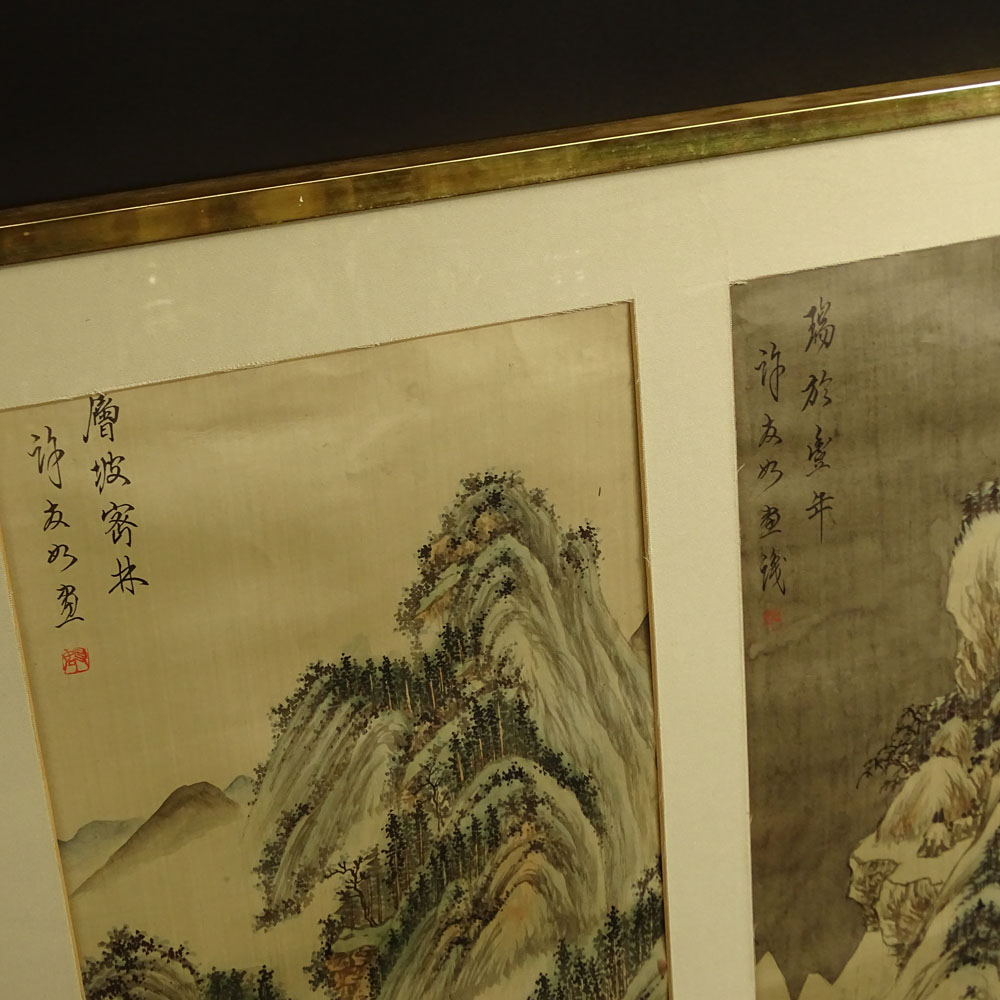 層坡密林
許友如畫
瑞於豐年
許友如畫識